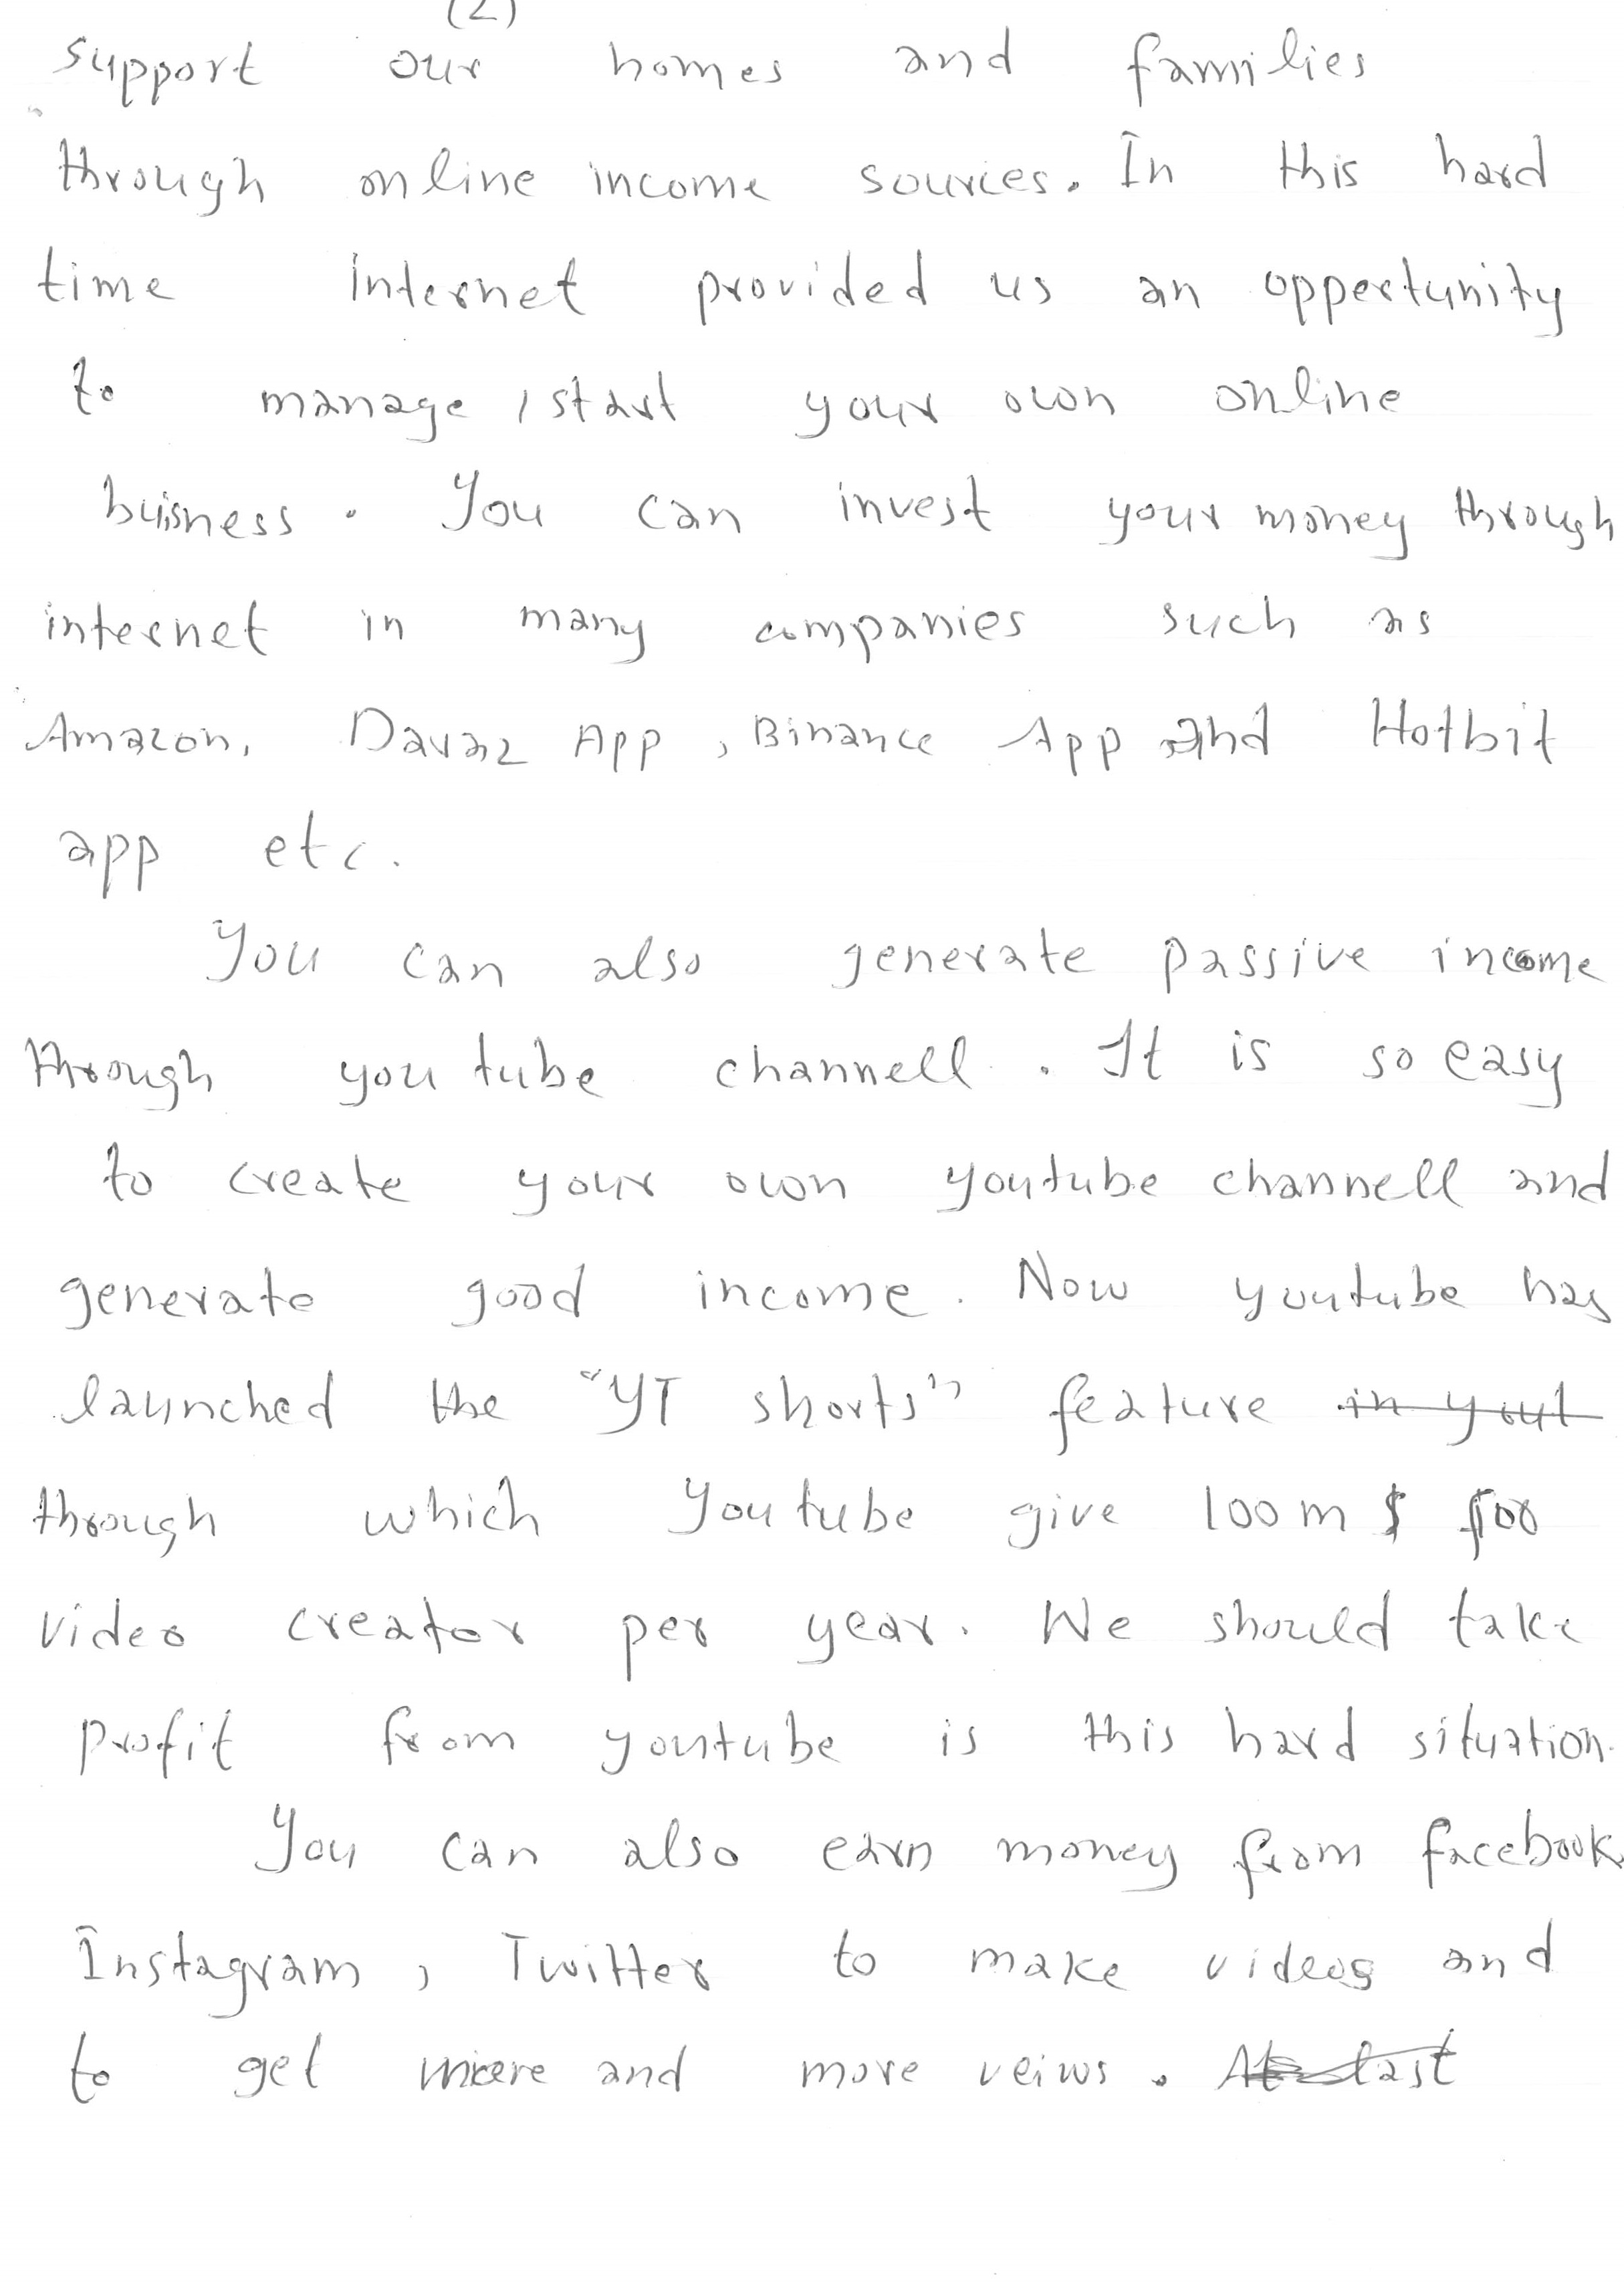 (2)
support our homes and families
through online income sources. In this hard
time internet provided us an oppertunity
to manage, start your own online
buisness. You can invest your money through
internet in many companies such as
Amazon, Daraz App, Binance App and Hotbit
app etc.
You can also generate passive income
through you tube channell. It is so easy
to create your own youtube channell and
generate good income. Now youtube has
launched the "YT shorts" feature in yout
through which Youtube give 100m $ for
video creator per year. We should take
profit from youtube is this hard situation.
You can also earn money from facebook,
Instagram, Twitter to make videos and
to get more and more veiws. At last